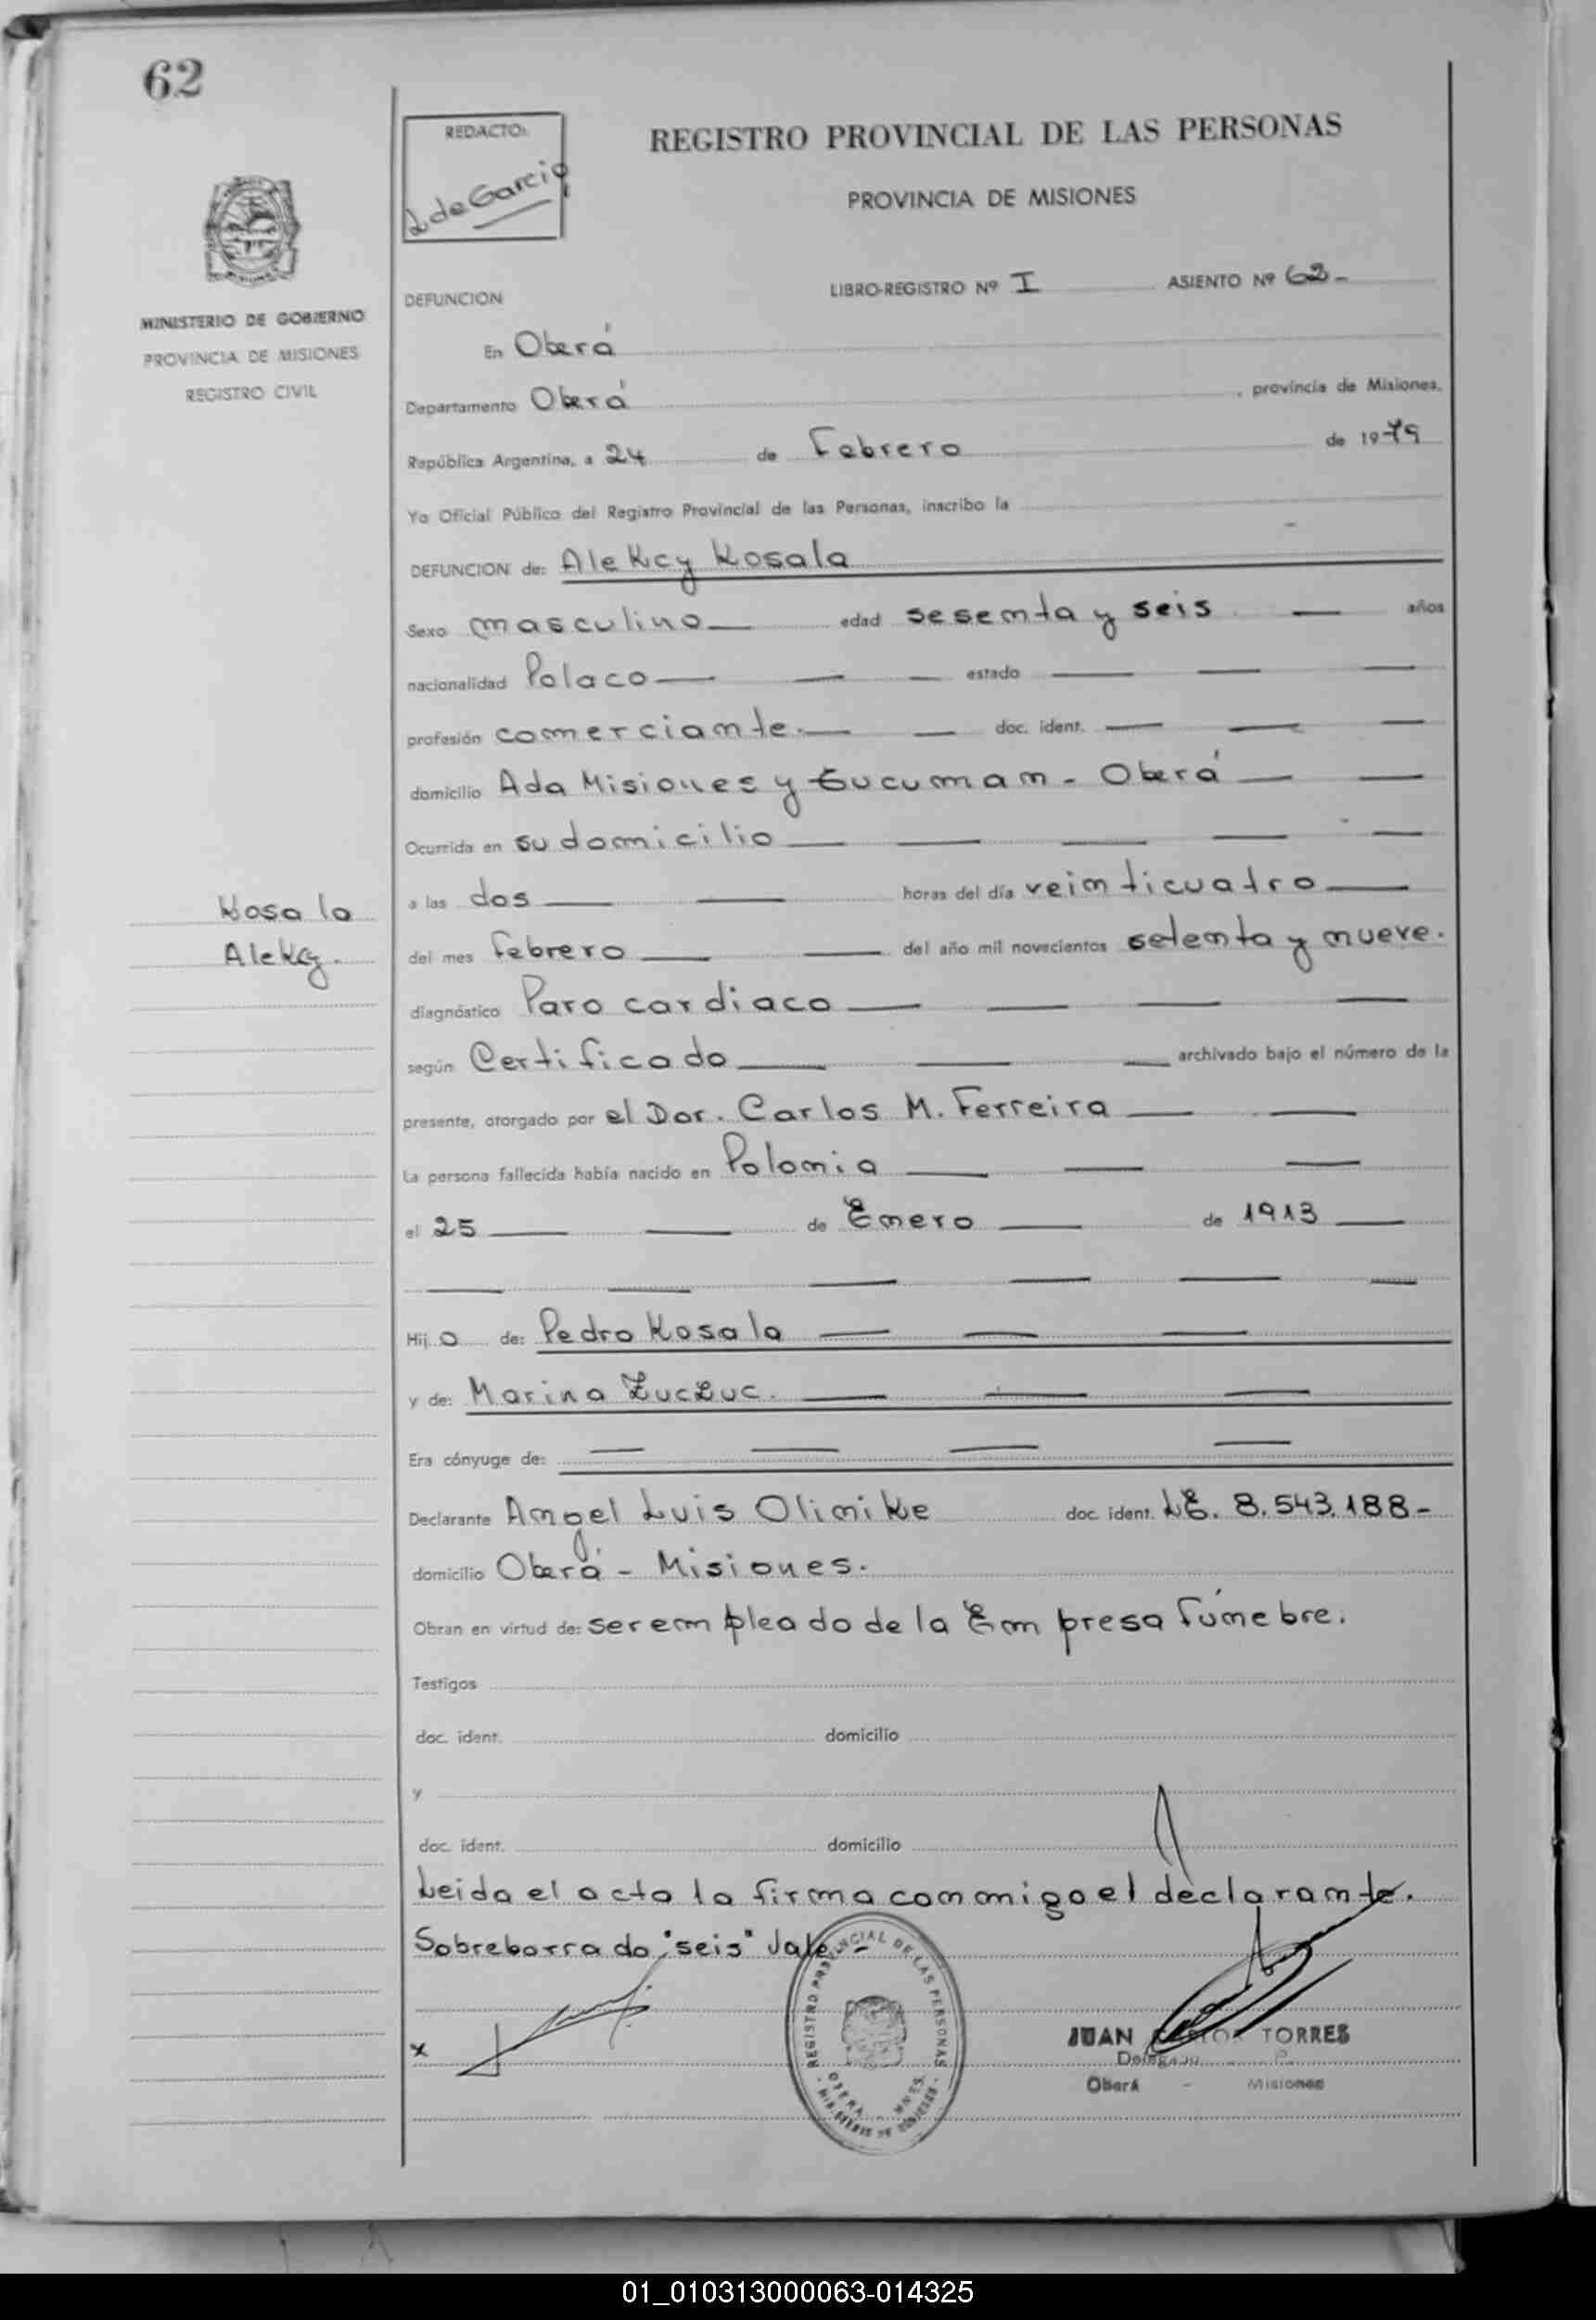 62
REDACTO:
L de Garcia
REGISTRO PROVINCIAL DE LAS PERSONAS
PROVINCIA DE MISIONES
MINISTERIO DE GOBIERNO
PROVINCIA DE MISIONES
REGISTRO CIVIL
DEFUNCION
LIBRO-REGISTRO Nº I ASIENTO Nº 62-
En Oberá
Departamento Oberá, provincia de Misiones,
República Argentina, a 24 de Febrero de 1979
Yo Oficial Público del Registro Provincial de las Personas, inscribo la
DEFUNCION de: Alekcy Kosala
Sexo masculino edad sesenta y seis años
nacionalidad Polaco estado
profesión comerciante. doc. ident.
domicilio Ada Misiones y Tucuman - Oberá
Ocurrida en su domicilio
a las dos horas del día veinticuatro
Kosala
Alekcy.
del mes febrero del año mil novecientos setenta y nueve.
diagnóstico Paro cardiaco
según Certificado archivado bajo el número de la
presente, otorgado por el Dor. Carlos M. Ferreira
La persona fallecida había nacido en Polonia
el 25 de Enero de 1913
Hij o de: Pedro Kosala
y de: Marina Zuczuc.
Era cónyuge de:
Declarante Angel Luis Olinike doc. ident. LE. 8.543.188-
domicilio Oberá - Misiones.
Obran en virtud de: ser empleado de la Empresa fúnebre.
Testigos
doc. ident. domicilio
y
doc. ident. domicilio
Leida el acta la firma conmigo el declarante.
Sobreborrado "seis" Vale-
x
REGISTRO PROVINCIAL DE LAS PERSONAS
JUAN CARLOS TORRES
Oberá - Misiones
01_010313000063-014325